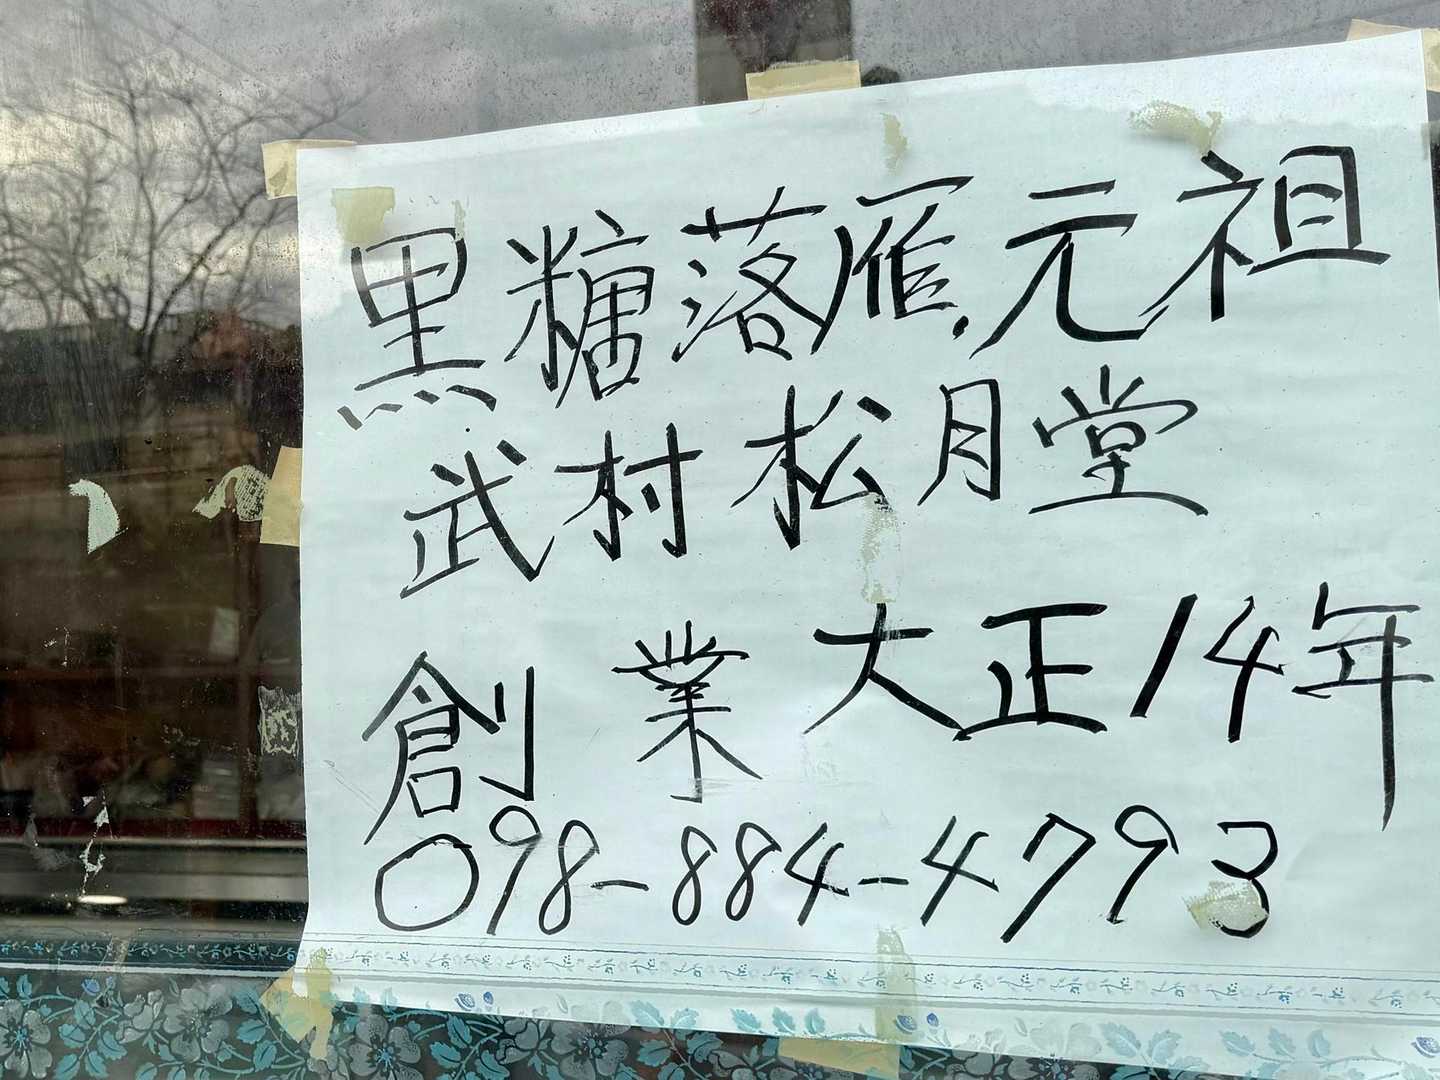 黒糖落雁元祖
武村松月堂
創業大正14年
098-884-4793